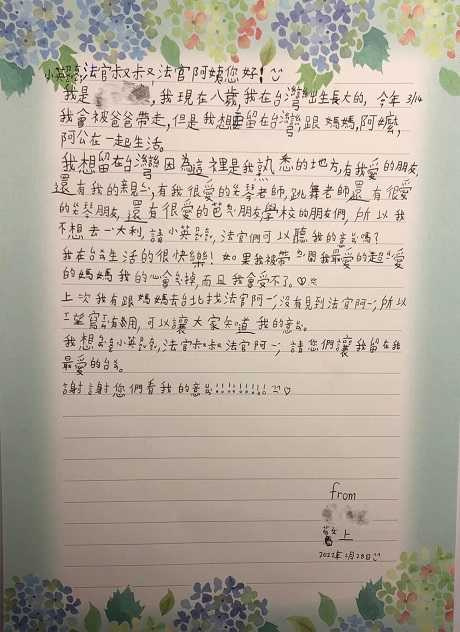 小英總統,法官叔叔法官阿姨您好!
我是,我現在八歲,我在台灣出生長大的,今年3/14
我會被爸爸帶走,但是我想要留在台灣,跟媽媽,阿嬤,
阿公在一起生活。
我想留在台灣因為這裡是我熟悉的地方,有我愛的朋友,
還有我的親人,有我很愛的鋼琴老師,跳舞老師,還有很愛
的鋼琴朋友,還有很愛的芭蕾朋友,學校的朋友們,所以我
不想去一大利,請小英總統,法官們可以聽我的意見嗎?
我在台灣生活的很快樂!如果我被帶離開我最愛的超級愛
的媽媽我的心會碎掉,而且我會受不了。
上次我有跟媽媽去台北找法官阿姨,沒有見到法官阿姨,所以
希望寫信有用,可以讓大家知道我的意見。
我想告訴小英總統,法官叔叔法官阿姨,請您們讓我留在我
最愛的台灣。
謝謝您們看我的意見!!!!!!!!!!
from
上
2022年 月28日